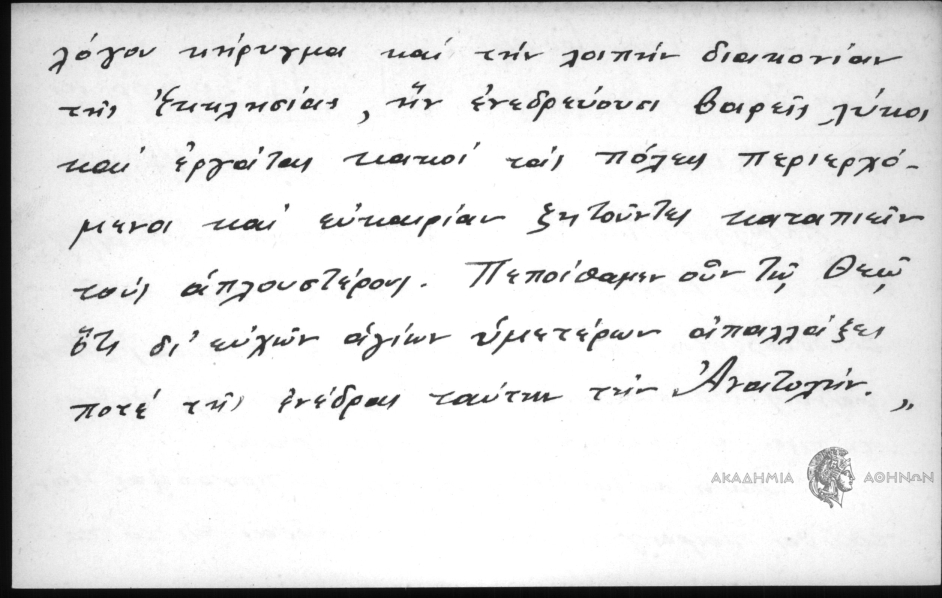 λόγου κήρυγμα καί τήν λοιπήν διακονίαν
τῆς Ἐκκλησίας, ἥν ἐνεδρεύουσι βαρεῖς λύκοι
καί ἐργάται κακοί τάς πόλεις περιερχό-
μενοι καί εὐκαιρίαν ζητοῦντες καταπιεῖν
τούς ἁπλουστέρους. Πεποίθαμεν οὖν τῷ Θεῷ
ὅτι δι' εὐχῶν ἁγίων ὑμετέρων ἀπαλλάξει
ποτέ τῆς ἐνέδρας ταύτην τήν Ἀνατολήν.,,
ΑΚΑΔΗΜΙΑ ΑΘΗΝΩΝ